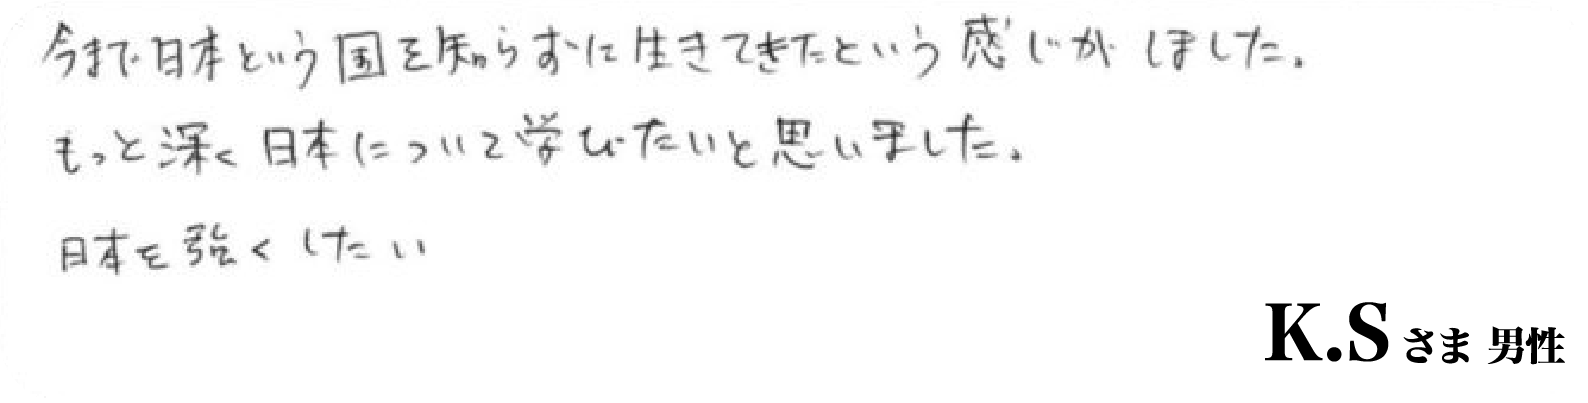 今まで日本という国を知らずに生きてきたという感じがしました。
もっと深く日本について学びたいと思いました。
日本を強くしたい
K.Sさま 男性